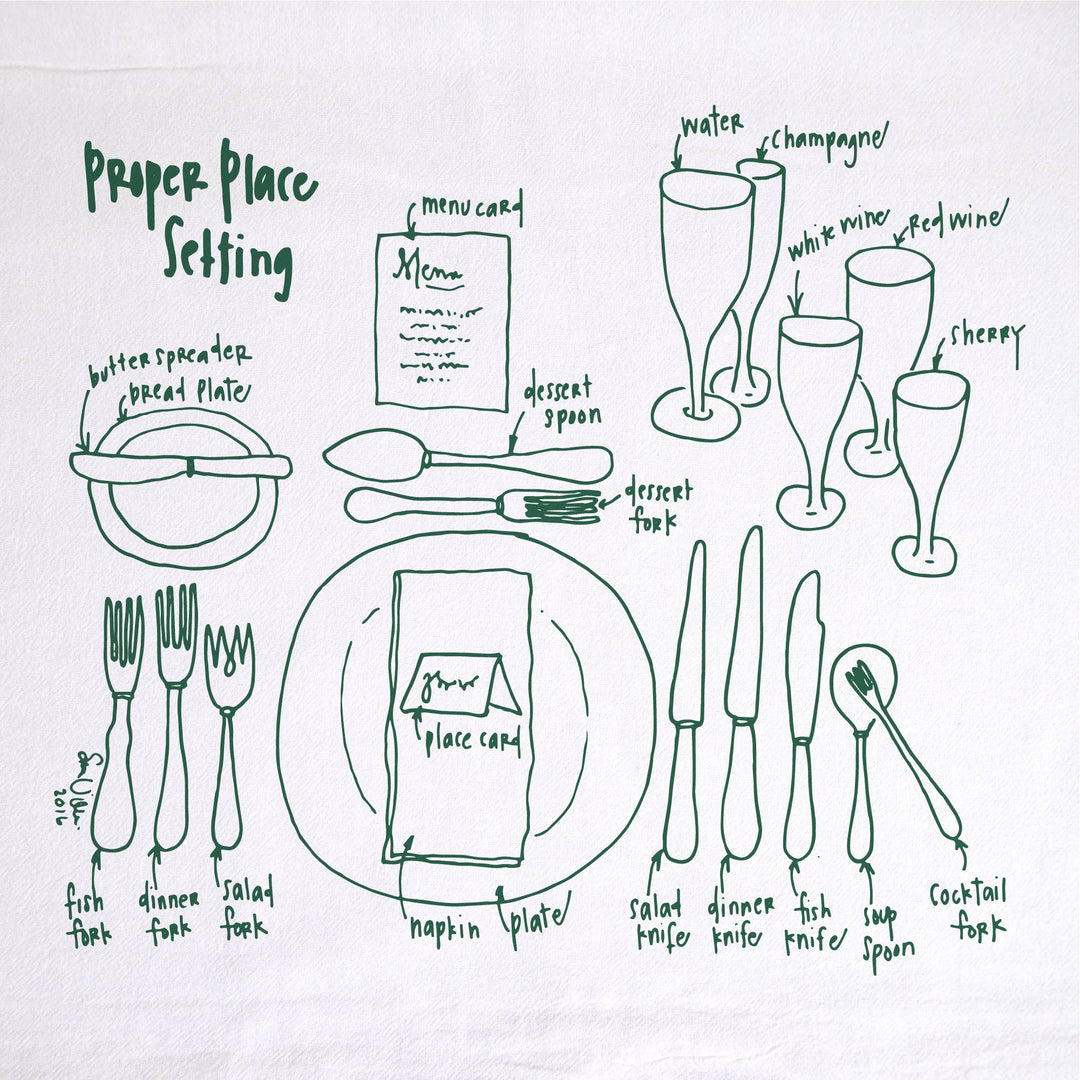 Proper Place
Setting
water
champagne
menu card
white wine
Red wine
Menu
sherry
butter spreader
bread plate
dessert
spoon
dessert
fork
place card
2016
fish
fork
dinner
fork
salad
fork
napkin
plate
salad
knife
dinner
knife
fish
knife
soup
spoon
cocktail
fork